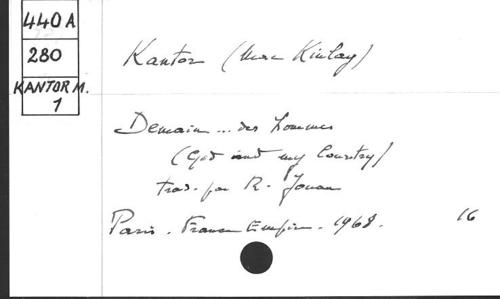 440A
280
KANTOR M.
1
Kantor (Mac Kinlay)
Demain... des hommes
(God and my Country)
trad. par R. Jouan
Paris. France Empire. 1968.
16